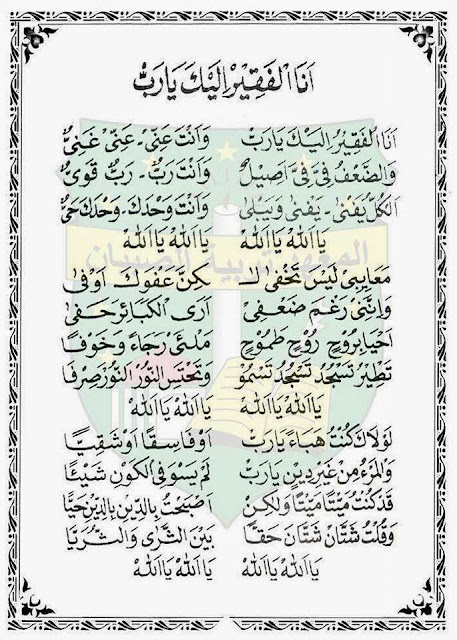 اَنَا الْفَقِيْرُ اِلَيْكَ يَارَبُّ
اَنَا الْفَقِيْرُ اِلَيْكَ يَارَبِّ وَاَنْتَ عَنِّى - عَنِّى غَنِيٌّ
وَالضَّعْفُ فِيَّ فِيَّ اَصِيْلٌ وَاَنْتَ رَبٌّ - رَبٌّ قَوِيٌّ
اَلْكُلُّ يَفْنَى - يَفْنَى وَيَبْلَى وَاَنْتَ وَحْدَكَ - وَحْدَكَ حَيٌّ
يَا اَللهُ يَا اَللهُ يَا اَللهُ يَا اَللهُ
المعهد تربية الصبيان
مَعَايِبِىْ لَيْسَ تَخْفَى لَا كِنَّ عَفْوَكَ اَوْفَى
وَاِنَّنِى رَغْمَ ضَعْفِى اَرَى الْكَبَائِرَ حَفَى
اَحْيَا بِرُوْحٍ رُوْحٍ طَمُوْحٍ مَلْئَى رَجَاءً وَخَوْفًا
تَطِيْرُ تَسْجُدُ تَسْجُدُ تَسْمُوْ وَتَحْتَسِ النُّوْرَ النُّوْرَ صِرْفَا
يَا اَللهُ يَا اَللهُ يَا اَللهُ يَا اَللهُ
لَوْلَاكَ كُنْتُ هَبَاءً يَارَبِّ اَوْ فَاسِقًا اَوْ شَقِيًّا
وَالْمَرْءُ مِنْ غَيْرِ دِيْنٍ يَارَبِّ لَمْ يَسْوَ فِى الْكَوْنِ شَيْئًا
قَدْ كُنْتُ مَيْتًا مَيْتًا وَلٰكِنْ اَصْبَحْتُ بِالدِّيْنِ بِالدِّيْنِ حَيًّا
وَقُلْتُ شَتَّانَ شَتَّانَ حَقًّا بَيْنَ الثَّرَى وَالثُّرَيَّا
يَا اَللهُ يَا اَللهُ يَا اَللهُ يَا اَللهُ